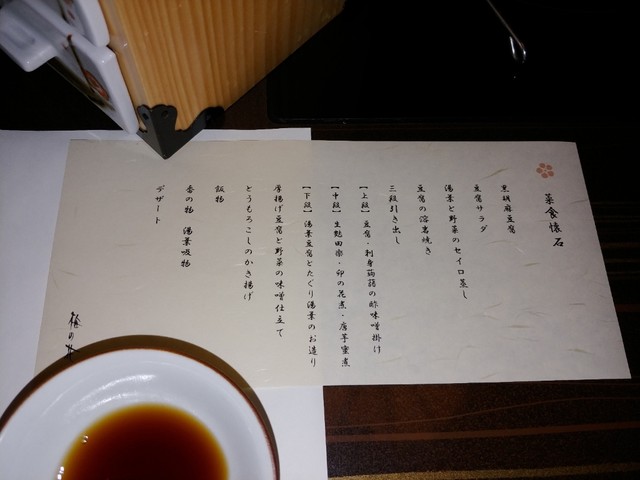 菜食懐石
黒胡麻豆腐
豆腐サラダ
湯葉と野菜のセイロ蒸し
豆腐の溶岩焼き
三段引き出し
【上段】豆腐・刺身蒟蒻の酢味噌掛け
【中段】生麩田楽・卯の花煮・唐芋蜜煮
【下段】湯葉豆腐とたぐり湯葉のお造り
厚揚げ豆腐と野菜の味噌仕立て
とうもろこしのかき揚げ
飯物
香の物 湯葉吸物
デザート